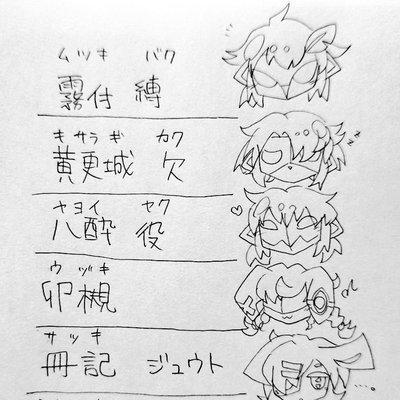 ムツキ バク
霧付 縛
キサラギ カク
黄更城 欠
ヤヨイ ヤク
八酔 役
ウヅキ
卯槻
サツキ
冊記 ジュウト